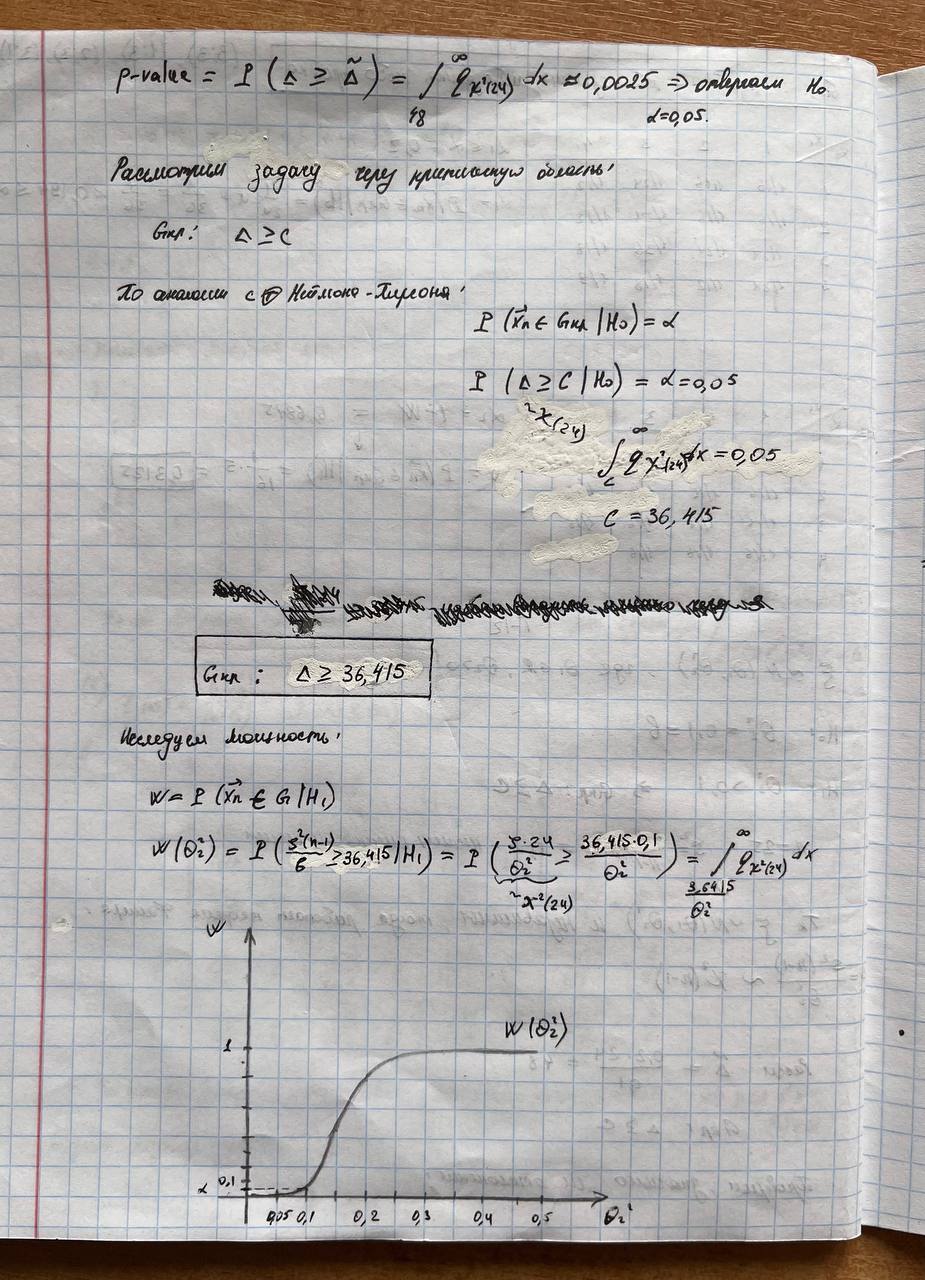 p-value = P ( Δ ≥ Δ̃ ) = ∫₄₈^∞ q_χ²(24) dx ≈ 0,0025 ⇒ отвергаем H₀
α=0,05.
Рассмотрим задачу через критическую область:
Gкр: Δ ≥ C
По аналогии с Неймона-Пирсона:
P (x⃗n ∈ Gкр | H₀) = α
P (Δ ≥ C | H₀) = α = 0,05
~χ²(24)
∫_C^∞ q_χ²(24) dx = 0,05
C = 36,415
Gкр : Δ ≥ 36,415
Исследуем мощность:
W = P (x⃗n ∈ G | H₁)
W(θ₂²) = P ( S²(n-1)/6 ≥ 36,415 | H₁) = P ( S·24/θ₂² ≥ 36,415·0,1/θ₂² ) = ∫_{3,6415/θ₂²}^∞ q_χ²(24) dx
~χ²(24)
W
W(θ₂²)
1
0,1
α
0,05 0,1 0,2 0,3 0,4 0,5 θ₂²